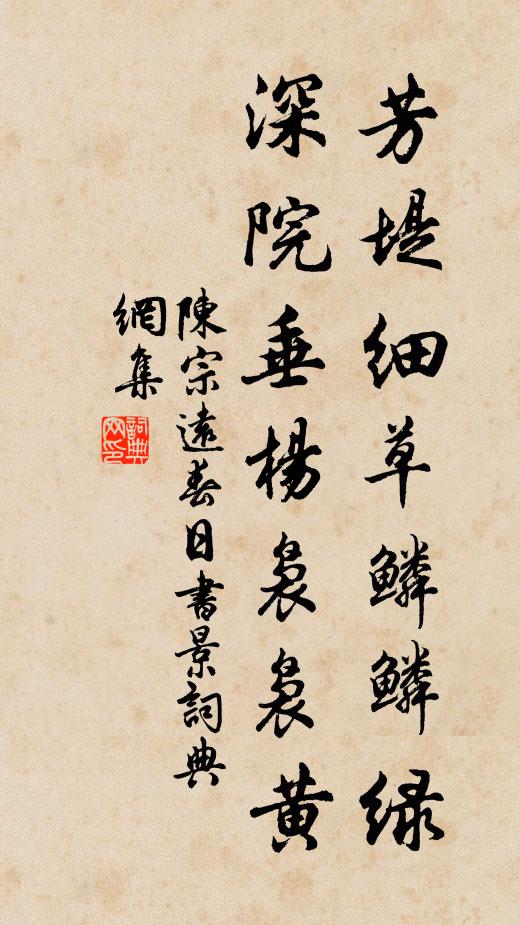 芳堤细草鳞鳞绿
深院垂楊裊裊黄
陳宗遠春日書景詞典
網集
詞典網印